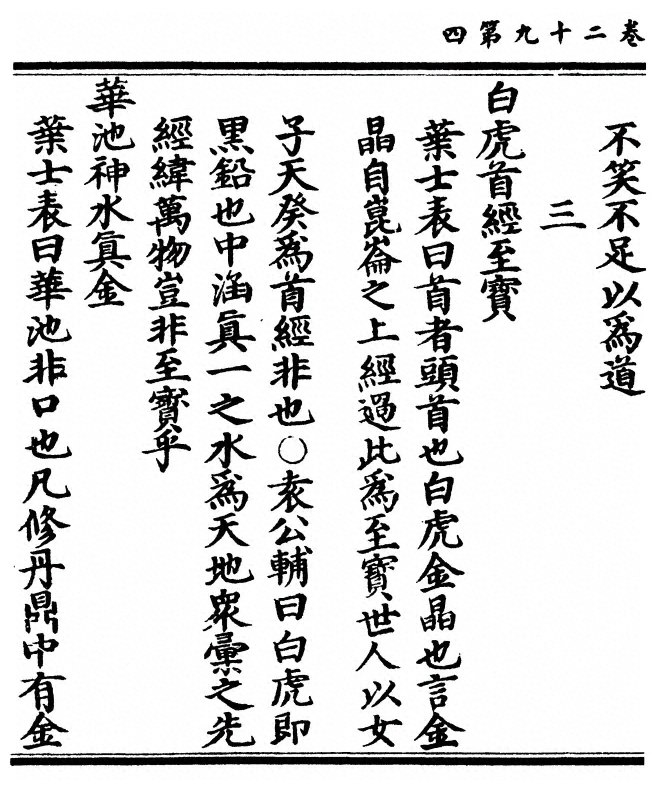 卷二十九第四
不笑不足以為道
三
白虎首經至寶
葉士表曰首者頭首也白虎金晶也言金
晶自崑崙之上經過此為至寶世人以女
子天癸為首經非也○袁公輔曰白虎即
黑鉛也中涵真一之水為天地眾彙之先
經緯萬物豈非至寶乎
華池神水真金
葉士表曰華池非口也凡修丹鼎中有金